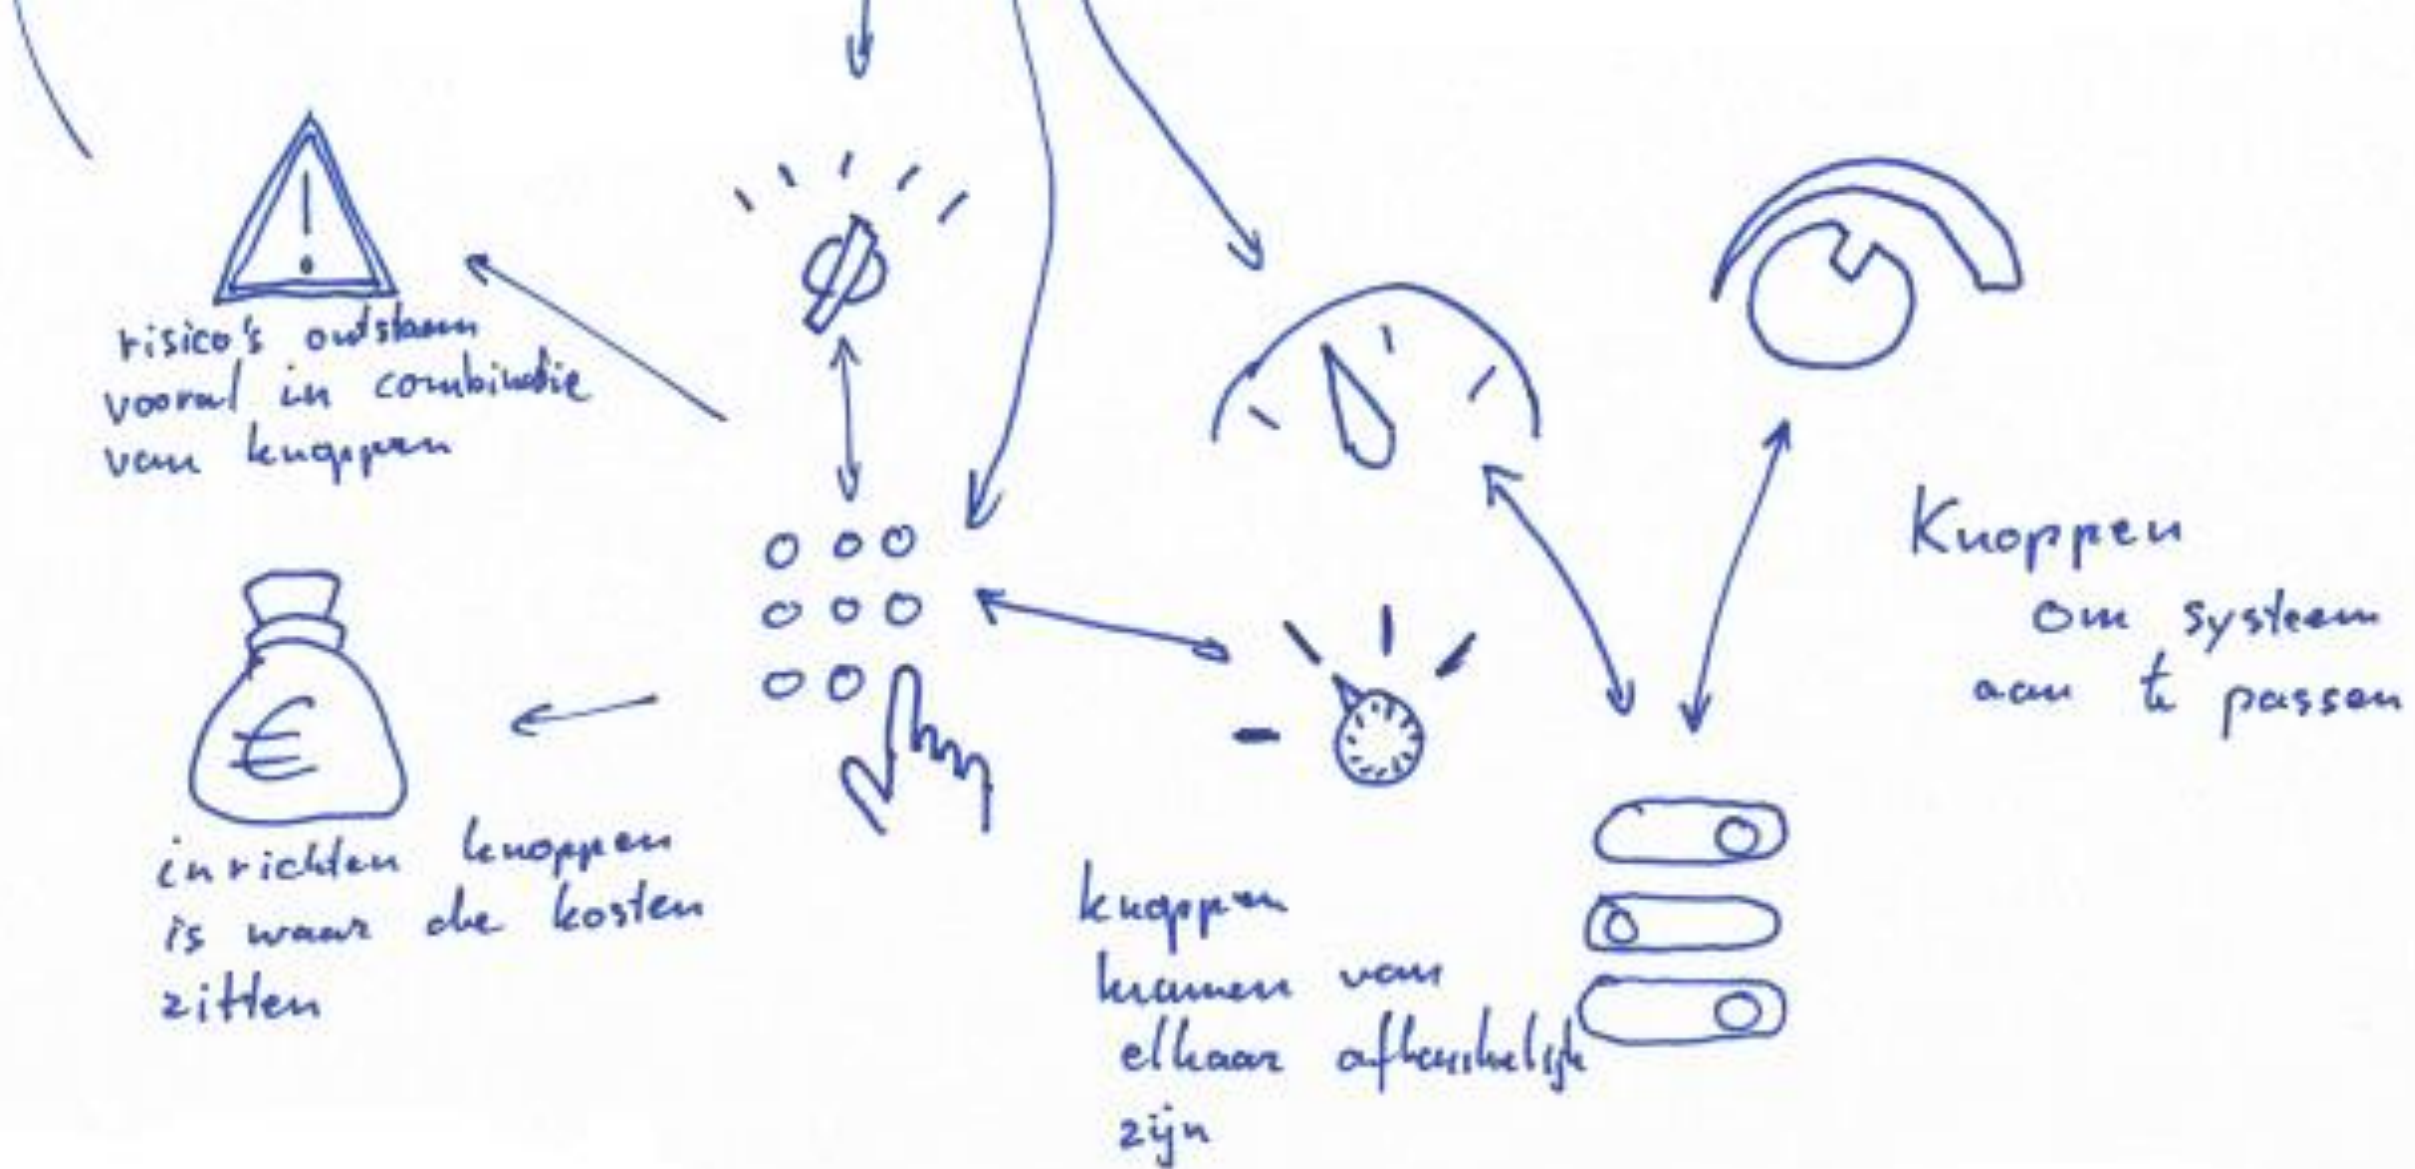 risico's ontstaan
vooral in combinatie
van knoppen
€
inrichten knoppen
is waar de kosten
zitten
knoppen
kunnen van
elkaar afhankelijk
zijn
Knoppen
om systeem
aan te passen